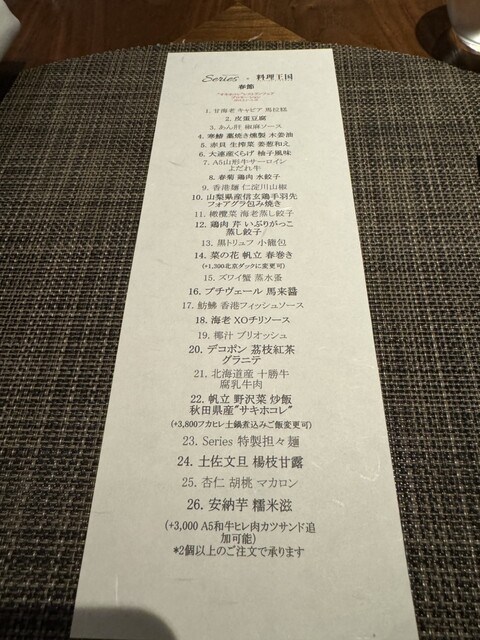 Series × 料理王国
春節
1. 甘海老 キャビア 馬拉糕
2. 皮蛋豆腐
3. あん肝 椒麻ソース
4. 寒鰆 藁焼き燻製 木姜油
5. 赤貝 生搾菜 姜葱和え
6. 大連産くらげ 柚子風味
7. A5山形牛サーロイン
よだれ牛
8. 春菊 鶏肉 水餃子
9. 香港麺 仁淀川山椒
10. 山梨県産信玄鶏手羽先
フォアグラ包み焼き
11. 橄欖菜 海老蒸し餃子
12. 鶏肉 芹 いぶりがっこ
蒸し餃子
13. 黒トリュフ 小籠包
14. 菜の花 帆立 春巻き
(+1,300北京ダックに変更可)
15. ズワイ蟹 蒸水蛋
16. プチヴェール 馬来醤
17. 魴鮄 香港フィッシュソース
18. 海老 XOチリソース
19. 椰汁 ブリオッシュ
20. デコポン 茘枝紅茶
グラニテ
21. 北海道産 十勝牛
腐乳牛肉
22. 帆立 野沢菜 炒飯
秋田県産"サキホコレ"
(+3,800フカヒレ土鍋煮込みご飯変更可)
23. Series 特製担々麺
24. 土佐文旦 楊枝甘露
25. 杏仁 胡桃 マカロン
26. 安納芋 糯米滋
(+3,000 A5和牛ヒレ肉カツサンド追
加可能)
*2個以上のご注文で承ります